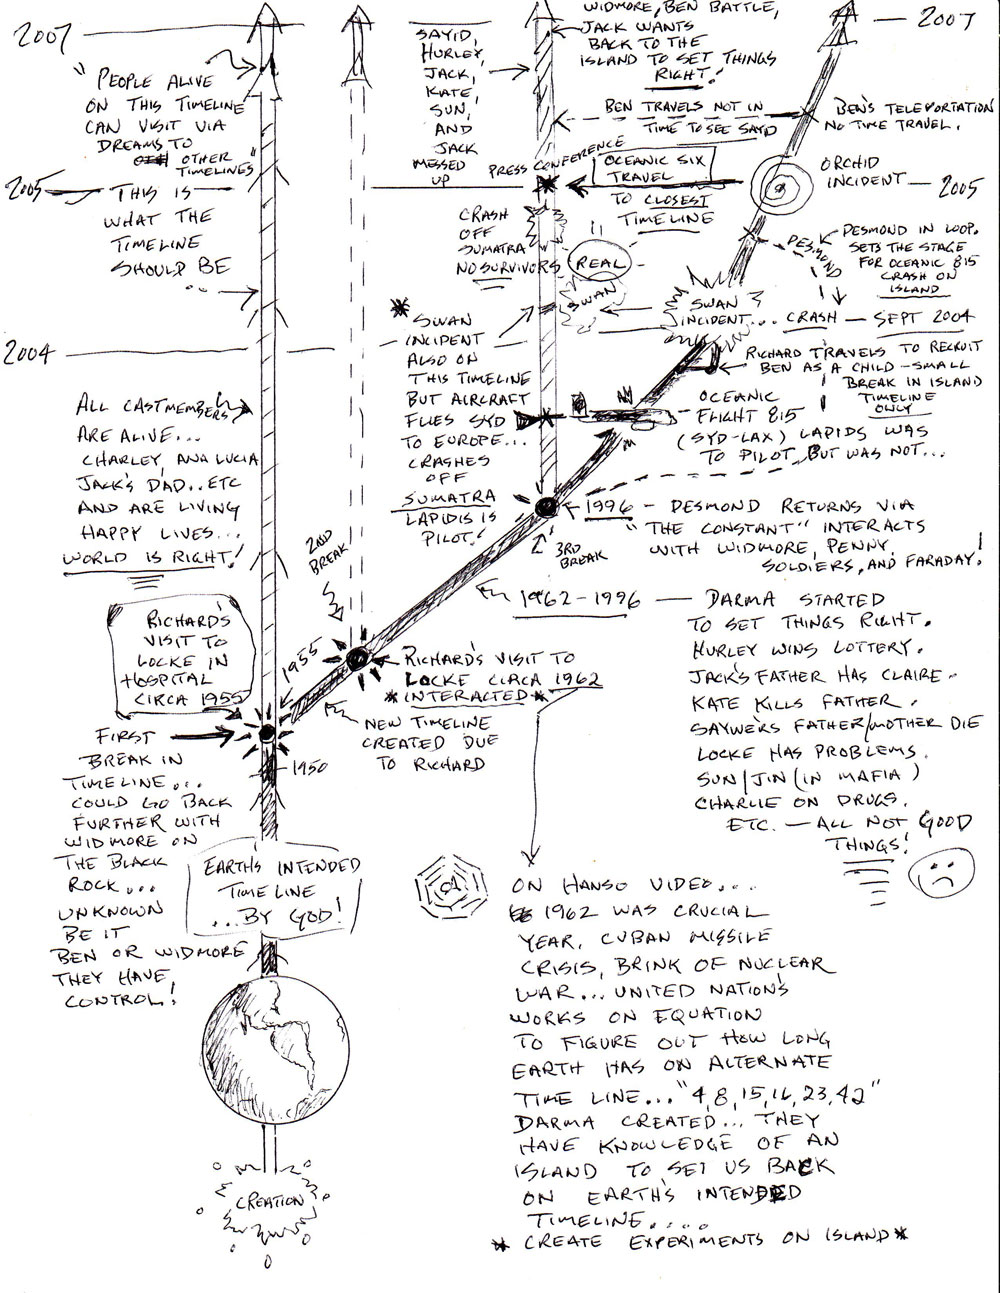 2007
"PEOPLE ALIVE
ON THIS TIMELINE
CAN VISIT VIA
DREAMS TO
OTHER
TIMELINES"
2005
THIS IS
WHAT THE
TIMELINE
SHOULD BE
...
2004
ALL CASTMEMBERS
ARE ALIVE...
CHARLEY, ANA LUCIA
JACK'S DAD..ETC
AND ARE LIVING
HAPPY LIVES...
WORLD IS RIGHT!
RICHARD'S
VISIT TO
LOCKE IN
HOSPITAL
CIRCA 1955
FIRST
BREAK IN
TIMELINE...
COULD GO BACK
FURTHER WITH
WIDMORE ON
THE BLACK
ROCK...
UNKNOWN
BE IT
BEN OR WIDMORE
THEY HAVE
CONTROL!
1950
1955
EARTH'S INTENDED
TIME LINE
...BY GOD!
CREATION
2ND
BREAK
SAYID,
HURLEY,
JACK,
KATE
SUN,
AND
JACK
MESSED
UP
WIDMORE, BEN BATTLE,
JACK WANTS
BACK TO THE
ISLAND TO SET THINGS
RIGHT!
2007
BEN TRAVELS NOT IN
TIME TO SEE SAYD
BEN'S TELEPORTATION
NO TIME TRAVEL.
PRESS CONFERENCE
OCEANIC SIX
TRAVEL
TO CLOSEST
TIMELINE
ORCHID
INCIDENT
2005
CRASH
OFF
SUMATRA
NO SURVIVORS
REAL
SWAN
DESMOND
DESMOND IN LOOP.
SETS THE STAGE
FOR OCEANIC 815
CRASH ON
ISLAND
SWAN
INCIDENT... CRASH — SEPT 2004
* SWAN
INCIDENT
ALSO ON
THIS TIMELINE
BUT AIRCRAFT
FLIES SYD
TO EUROPE...
CRASHES
OFF
SUMATRA
LAPIDIS IS
PILOT!
RICHARD TRAVELS TO RECRUIT
BEN AS A CHILD - SMALL
BREAK IN ISLAND
TIMELINE
ONLY
OCEANIC
FLIGHT 815
(SYD-LAX) LAPIDS WAS
TO PILOT, BUT WAS NOT...
1996 - DESMOND RETURNS VIA
"THE CONSTANT" INTERACTS
WITH WIDMORE, PENNY,
SOLDIERS, AND FARADAY!
3RD
BREAK
1962-1996 — DARMA STARTED
TO SET THINGS RIGHT.
HURLEY WINS LOTTERY.
JACK'S FATHER HAS CLAIRE.
KATE KILLS FATHER.
SAYWERS FATHER/MOTHER DIE
LOCKE HAS PROBLEMS.
SUN/JIN (IN MAFIA)
CHARLIE ON DRUGS.
ETC. — ALL NOT GOOD
THINGS!
RICHARD'S VISIT TO
LOCKE CIRCA 1962
*INTERACTED*
NEW TIMELINE
CREATED DUE
TO RICHARD
ON HANSO VIDEO...
1962 WAS CRUCIAL
YEAR, CUBAN MISSILE
CRISIS, BRINK OF NUCLEAR
WAR... UNITED NATION'S
WORKS ON EQUATION
TO FIGURE OUT HOW LONG
EARTH HAS ON ALTERNATE
TIME LINE... "4,8,15,16,23,42"
DARMA CREATED... THEY
HAVE KNOWLEDGE OF AN
ISLAND TO SET US BACK
ON EARTH'S INTENDED
TIMELINE....
* CREATE EXPERIMENTS ON ISLAND*